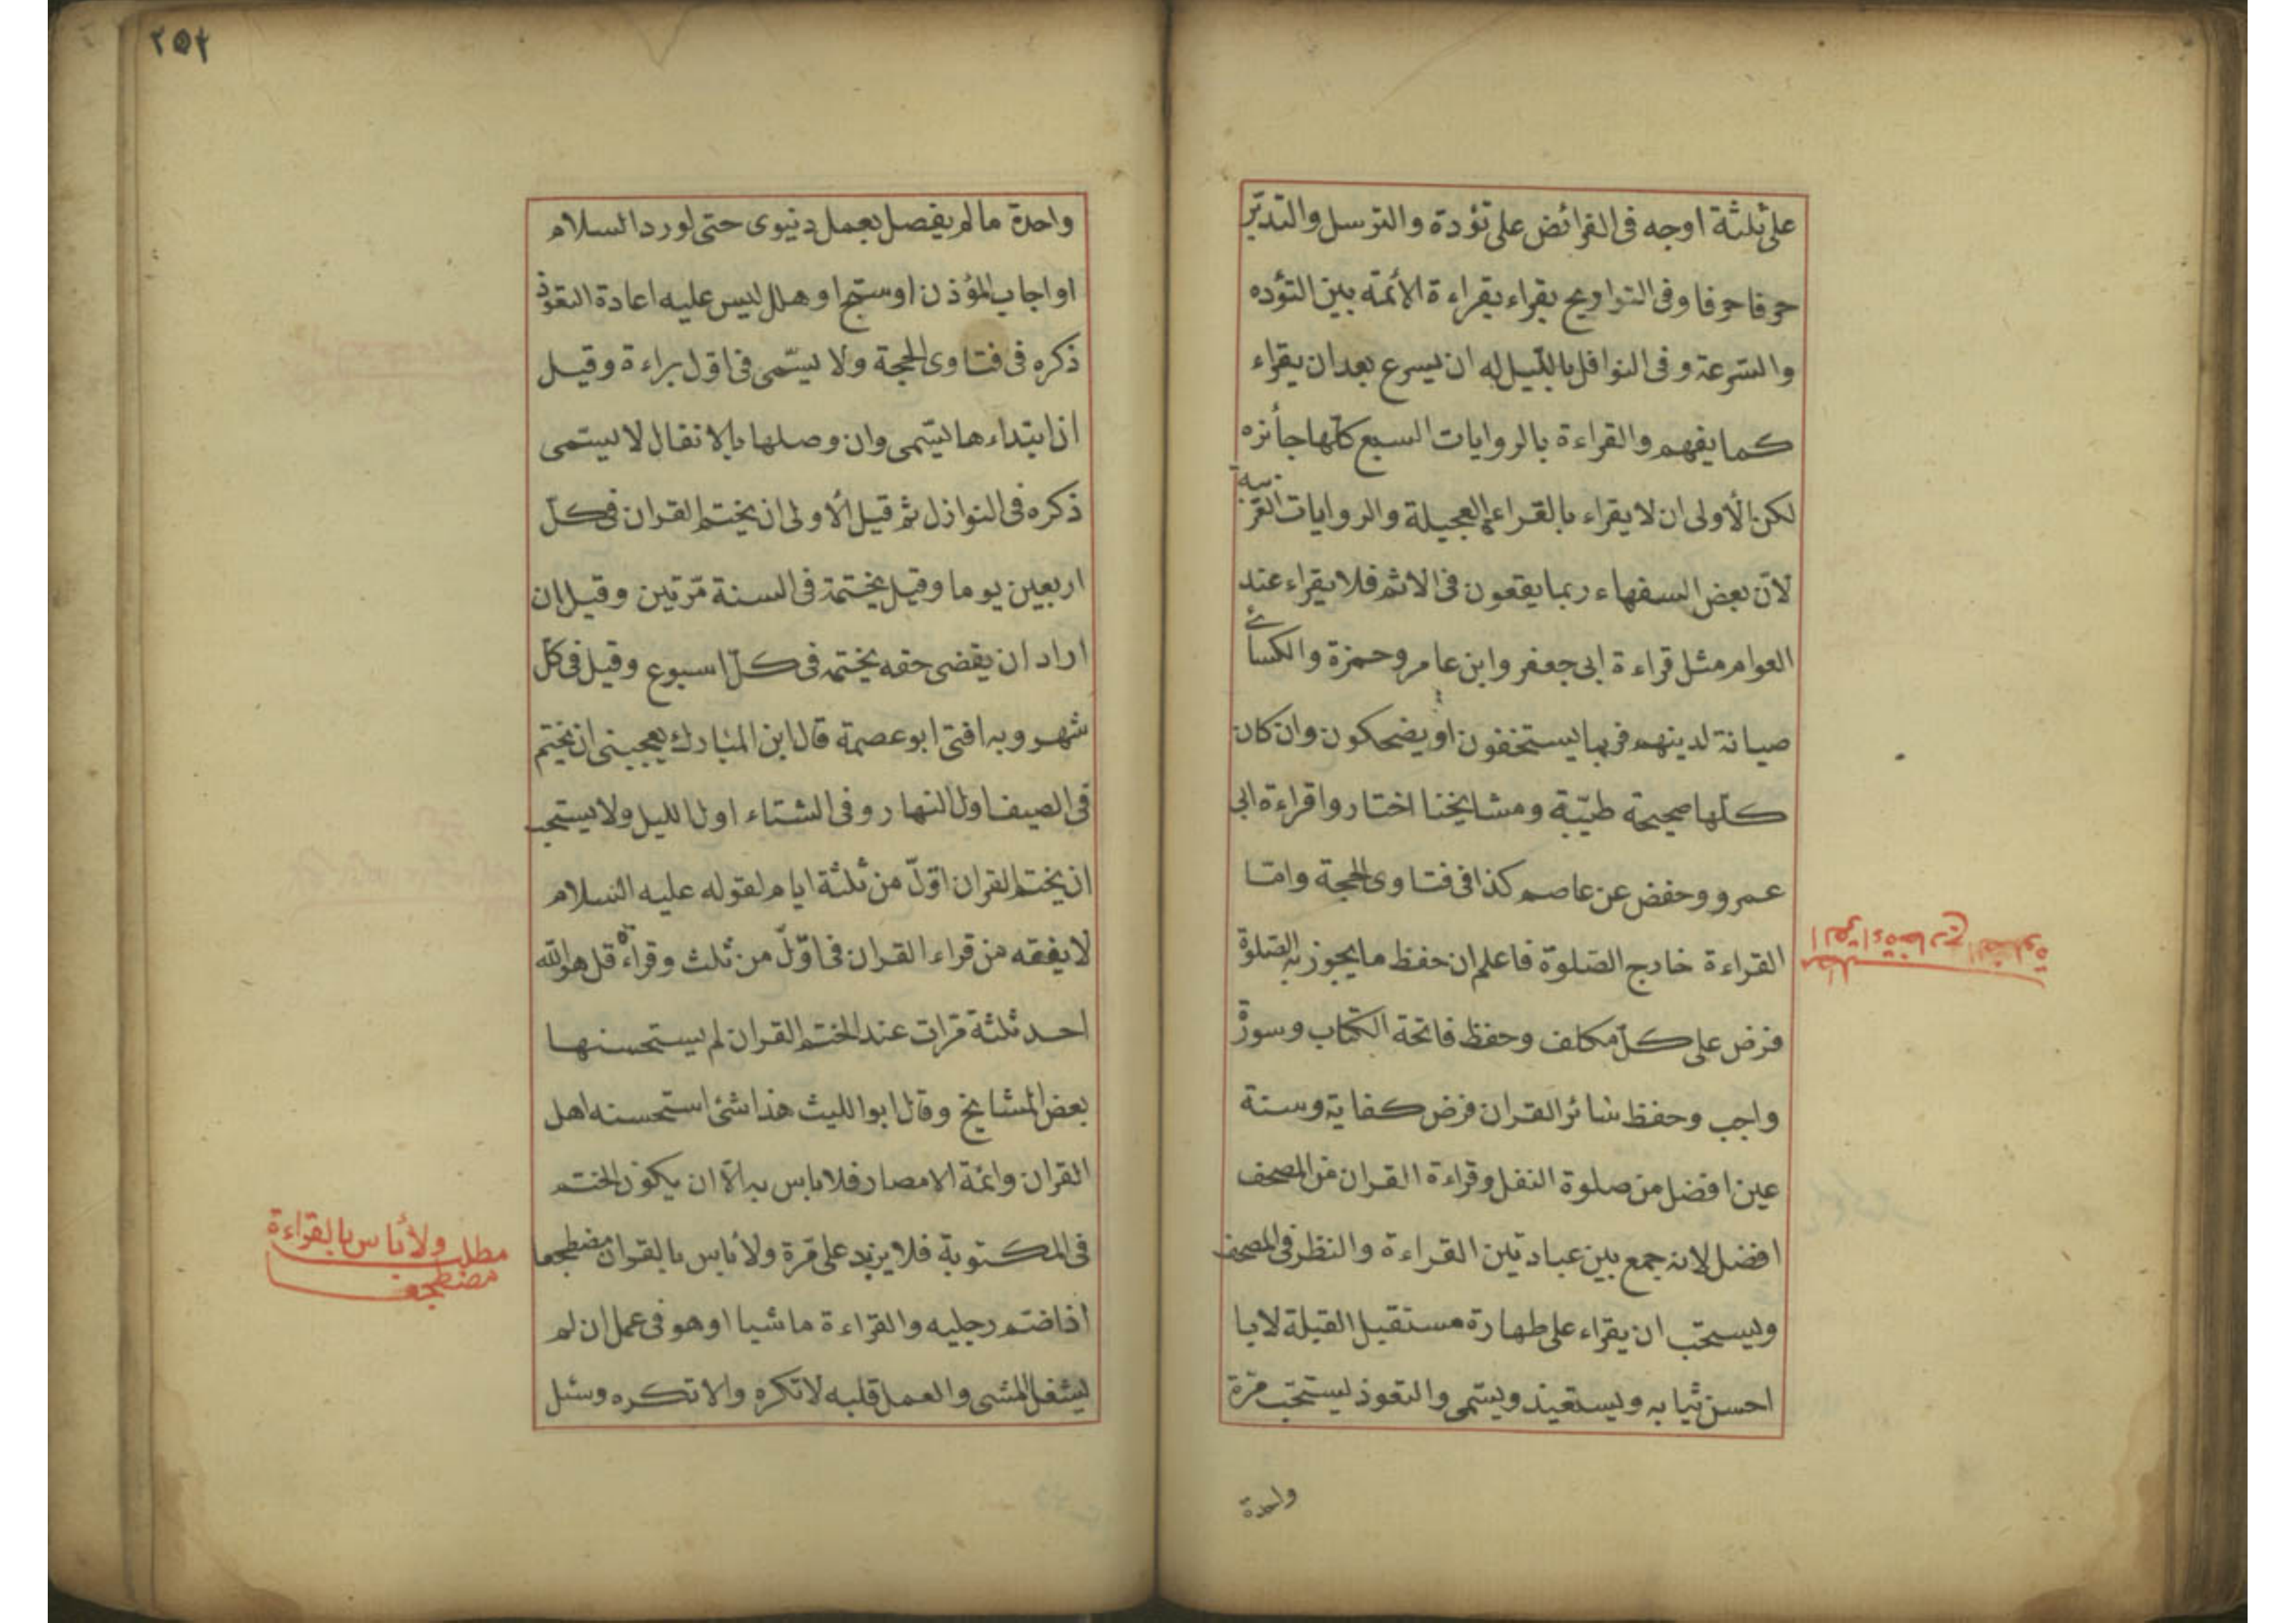 على ثلثة اوجه فى الفرائض على تؤدة والترسل والتدبّر
حرفا حرفا وفى التراويح يقراء بقراءة الأئمة بين التؤده
والسّرعة وفى النوافل بالليل له ان يسرع بعد ان يقراء
كما يفهم والقراءة بالروايات السبع كلّها جائزه
لكن الأولى ان لا يقراء بالقراءة العجيلة والروايات الغريبة
لانّ بعض السفهاء ربما يقعون فى الاثم فلا يقراء عند
العوام مثل قراءة ابى جعفر وابن عامر وحمزة والكسائ
صيانة لدينهم فربما يستخفون او يضحكون وان كان
كلّها صحيحة طيّبة ومشايخنا اختاروا قراءة ابى
عمرو وحفض عن عاصم كذا فى فتاوى الحجة وامّا
القراءة خارج الصّلوة فاعلم ان حفظ ما يجوز به الصّلوة
فرض على كلّ مكلف وحفظ فاتحة الكتاب وسورة
واجب وحفظ سائر القران فرض كفاية وسنة
عين افضل من صلوة النفل وقراءة القران من المصحف
افضل لانه جمع بين عبادتين القراءة والنظر فى المصحف
ويستحبّ ان يقراء على طهارة مستقبل القبلة لابا
احسن ثيابه ويستعيذ ويسّمى والتعوذ يستحبّ مرّة
واحدة
مطلب
القراءة خارج الصلوة
٢٥٢
واحدة ما لم يفصل بعمل دنيوى حتى لو رد السلام
او اجاب المؤذن او سبّح او هلل ليس عليه اعادة التعوّذ
ذكره فى فتاوى الحجة ولا يسّمى فى اوّل براءة وقيل
اذا ابتداءها يسّمى وان وصلها بالانفال لا يسّمى
ذكره فى النوازل ثم قيل الأولى ان يختم القران فى كلّ
اربعين يوما وقيل يختمة فى السنة مرّتين وقيل ان
اراد ان يقضى حقه يختمه فى كلّ اسبوع وقيل فى كلّ
شهر وبه افتى ابو عصمة قال ابن المبارك يعجبنى ان يختم
فى الصيف اول النهار وفى الشتاء اول الليل ولا يستحب
ان يختم القران اقلّ من ثلثة ايام لقوله عليه السلام
لا يفقه من قراء القران فى اقلّ من ثلث وقراءة قل هو الله
احد ثلثة مرات عند الختم القران لم يستحسنها
بعض المشايخ وقال ابو الليث هذا شئ استحسنه اهل
القران وائمة الامصار فلا باس به الّا ان يكون الختم
فى المكتوبة فلا يزيد على مرة ولا باس بالقران مضطجعا
اذا ضّم رجليه والقراءة ماشيا او هو فى عمل ان لم
يشغل المشى والعمل قلبه لا تكره والا تكره وسئل
مطلب ولا باس بالقراءة
مضطجعا